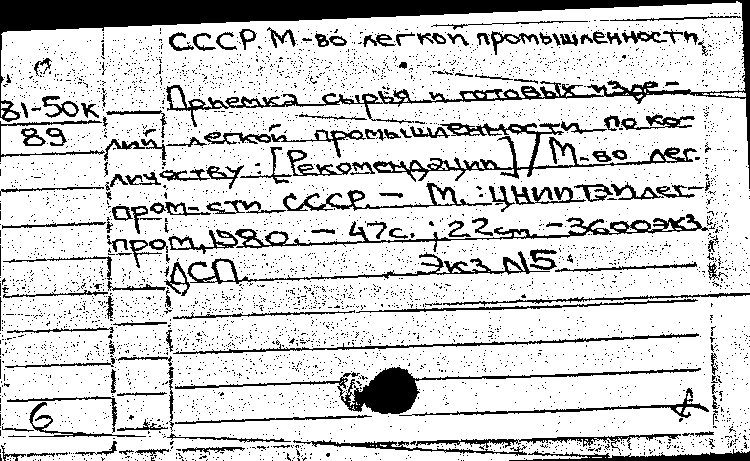 СССР. М-во легкой промышленности
81-50к
89
Приемка сырья и готовых изде-
лий легкой промышленности по ко-
личеству : [Рекомендации] / М-во лег.
пром-сти СССР. – М. : ЦНИИТЭИлег-
пром, 1980. – 47с. ; 22см. – 3600экз.
ДСП. Экз N5.
6